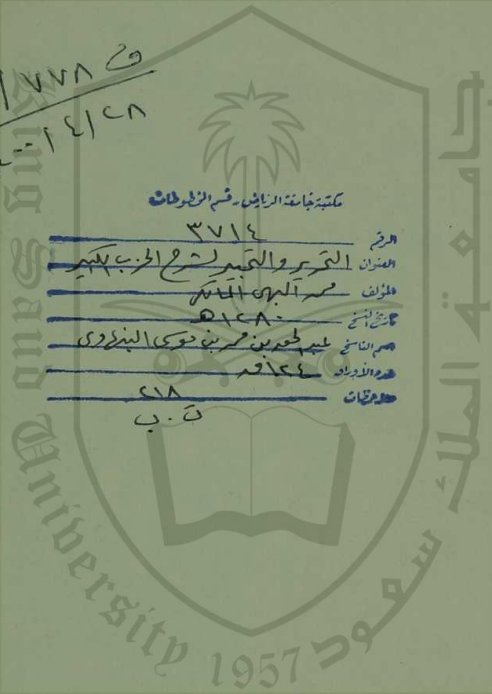 ف ٧٧٨ /
٢٨ / ٤ / ..
مكتبة جامعة الرياض - قسم المخطوطات
الرقم ٣٧١٤
العنوان التحرير والتحبير لشرح الحزب الكبير
المؤلف محمد البهي المالكي
تاريخ النسخ ١٢٨٠هـ
اسم الناسخ عبد بن محمد بن موسى
عدد الأوراق ١٢٤
ملاحظات ٢١٨
ت . ب
جامعة الملك سعود
King Saud University
1957